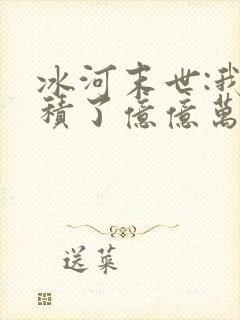 冰河末世:我
積了億億萬
送菜